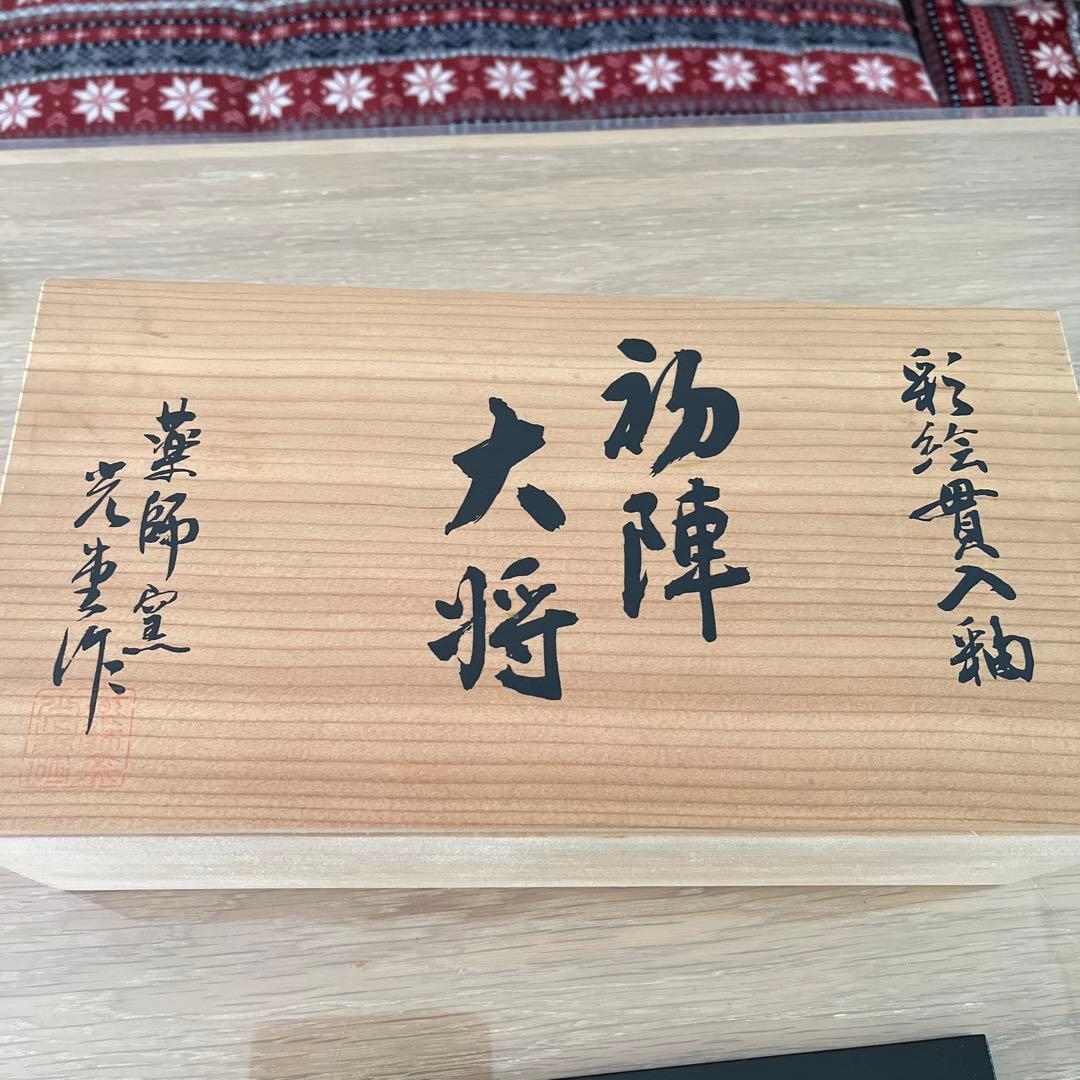 彩絵貫入釉
初陣
大将
薬師窯
光生作